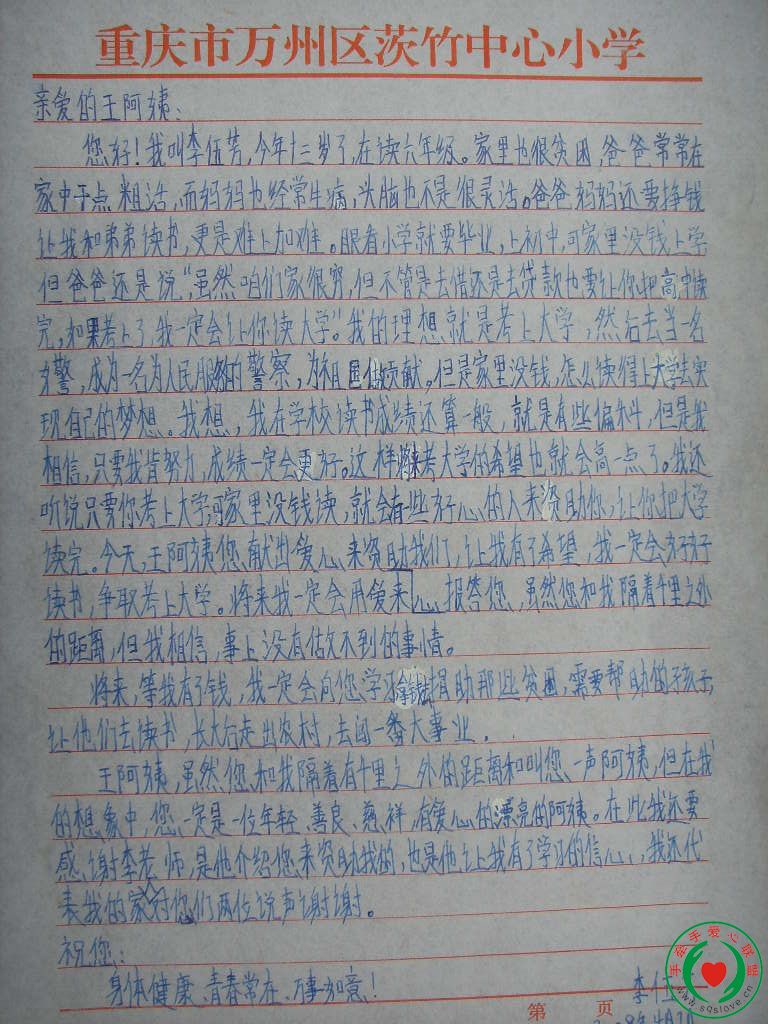 重庆市万州区茨竹中心小学
亲爱的王阿姨：
您好！我叫李伍芳，今年十三岁了，在读六年级。家里也很贫困，爸爸常常在
家中干点粗活，而妈妈也经常生病，头脑也不是很灵活。爸爸妈妈还要挣钱
让我和弟弟读书，更是难上加难。眼看小学就要毕业，上初中，可家里没钱上学
但爸爸还是说“虽然咱们家很穷，但不管是去借还是去贷款也要让你把高中读
完，如果考上了，我一定会让你读大学”。我的理想就是考上大学，然后去当一名
警，成为一名为人民服务的警察，为祖国做贡献。但是家里没钱，怎么读得上大学去实
现自己的梦想。我想，我在学校读书成绩还算一般，就是有些偏科，但是我
相信，只要我肯努力，成绩一定会更好。这样将来考大学的希望也就会高一点了。我还
听说只要你考上大学，可家里没钱读，就会有些好心的人来资助你，让你把大学
读完。今天，王阿姨您献出爱心来资助我们，让我有了希望，我一定会好好
读书，争取考上大学。将来我一定会用爱来心报答您，虽然您和我隔着千里之外
的距离，但我相信，事上没有做不到的事情。
将来，等我有了钱，我一定会向您学习拿钱捐助那些贫困，需要帮助的孩子，
让他们去读书，长大后走出农村，去闯一番大事业。
王阿姨，虽然您和我隔着有千里之外的距离和叫您一声阿姨，但在我
的想象中，您一定是一位年轻、善良、慈祥，有爱心的漂亮的阿姨。在此我还要
感谢李老师，是他介绍您来资助我的，也是他让我有了学习的信心，我还代
表我的家对您们两位说声谢谢。
祝您：
身体健康、青春常在、万事如意！
李伍
第 页
手牵手爱心联盟
www.sqslove.cn